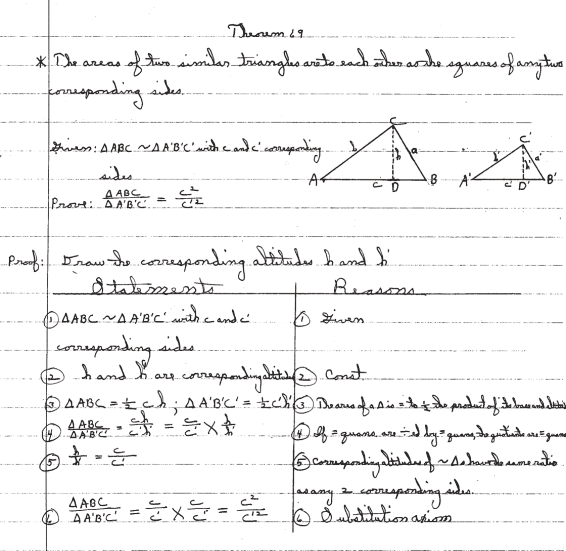 Theorem 69
* The areas of two similar triangles are to each other as the squares of any two
corresponding sides.
Given: ΔABC ~ ΔA'B'C' with c and c' corresponding
sides
Prove: ΔABC / ΔA'B'C' = c² / c'²
C
b h a
A c D B
C'
b' h' a'
A' c' D' B'
Proof: Draw the corresponding altitudes h and h'
Statements Reasons
① ΔABC ~ ΔA'B'C' with c and c' ① Given
corresponding sides
② h and h' are corresponding altitudes ② Const.
③ ΔABC = ½ ch ; ΔA'B'C' = ½ c'h' ③ The area of a Δ is = to ½ the product of its base and altitude
④ ΔABC / ΔA'B'C' = ch / c'h' = c / c' × h / h' ④ If = quans. are ÷ed by = quans, the quotients are = quans
⑤ h / h' = c / c' ⑤ Corresponding altitudes of ~ Δs have the same ratio
as any 2 corresponding sides.
⑥ ΔABC / ΔA'B'C' = c / c' × c / c' = c² / c'² ⑥ Substitution axiom